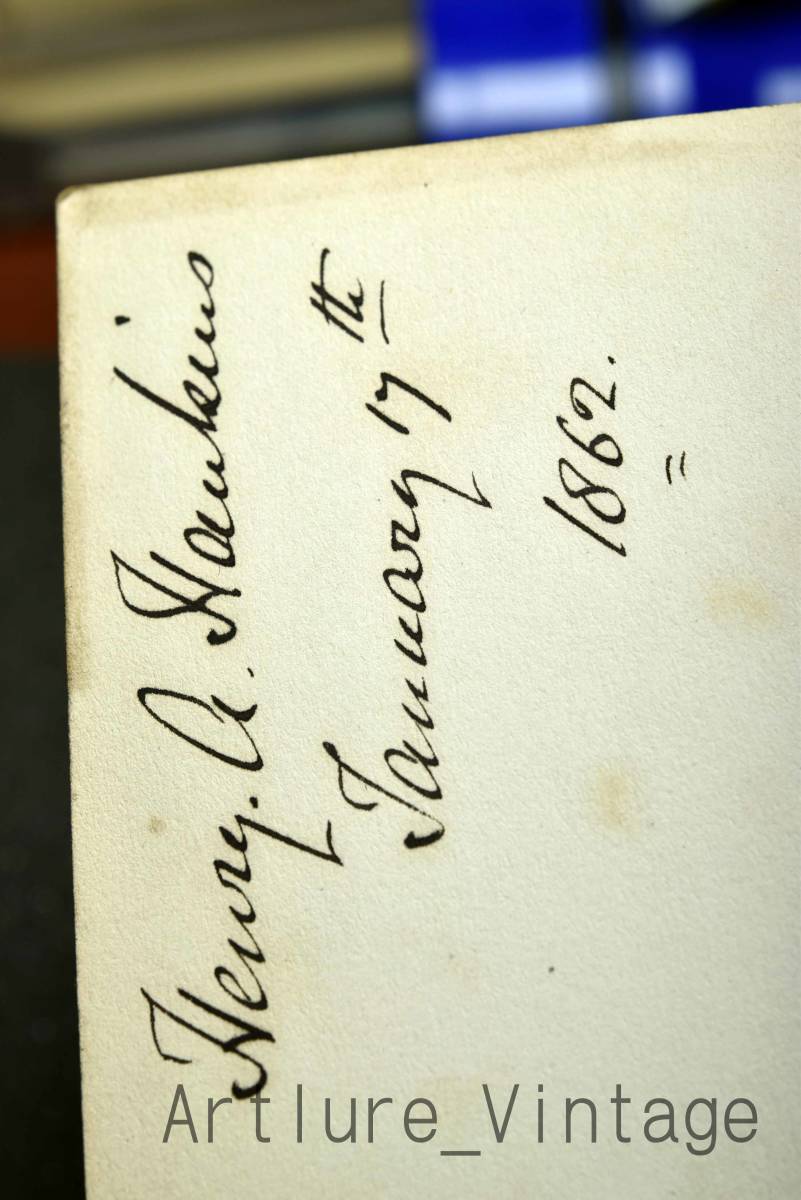 Henry. A. Hawkins
January 17th
1862.
Artlure_Vintage